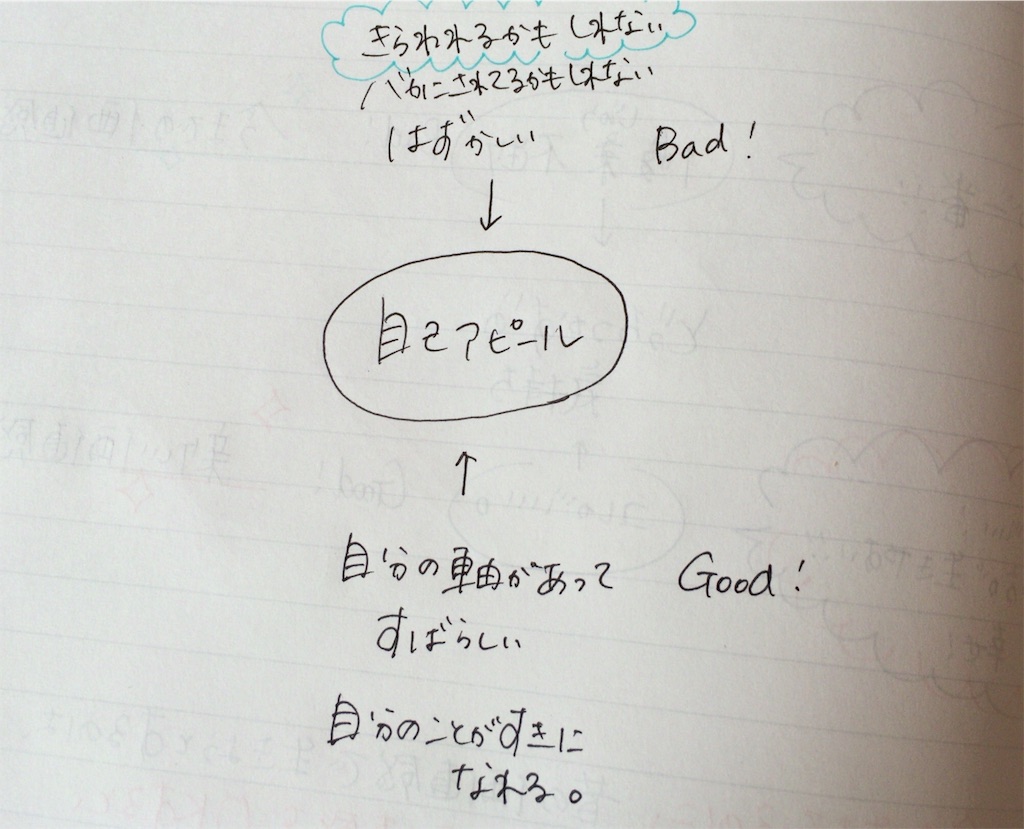 きらわれるかもしれない
バカにされてるかもしれない
はずかしい
Bad!
自己アピール
自分の軸があって
Good!
すばらしい
自分のことがすきに
なれる。